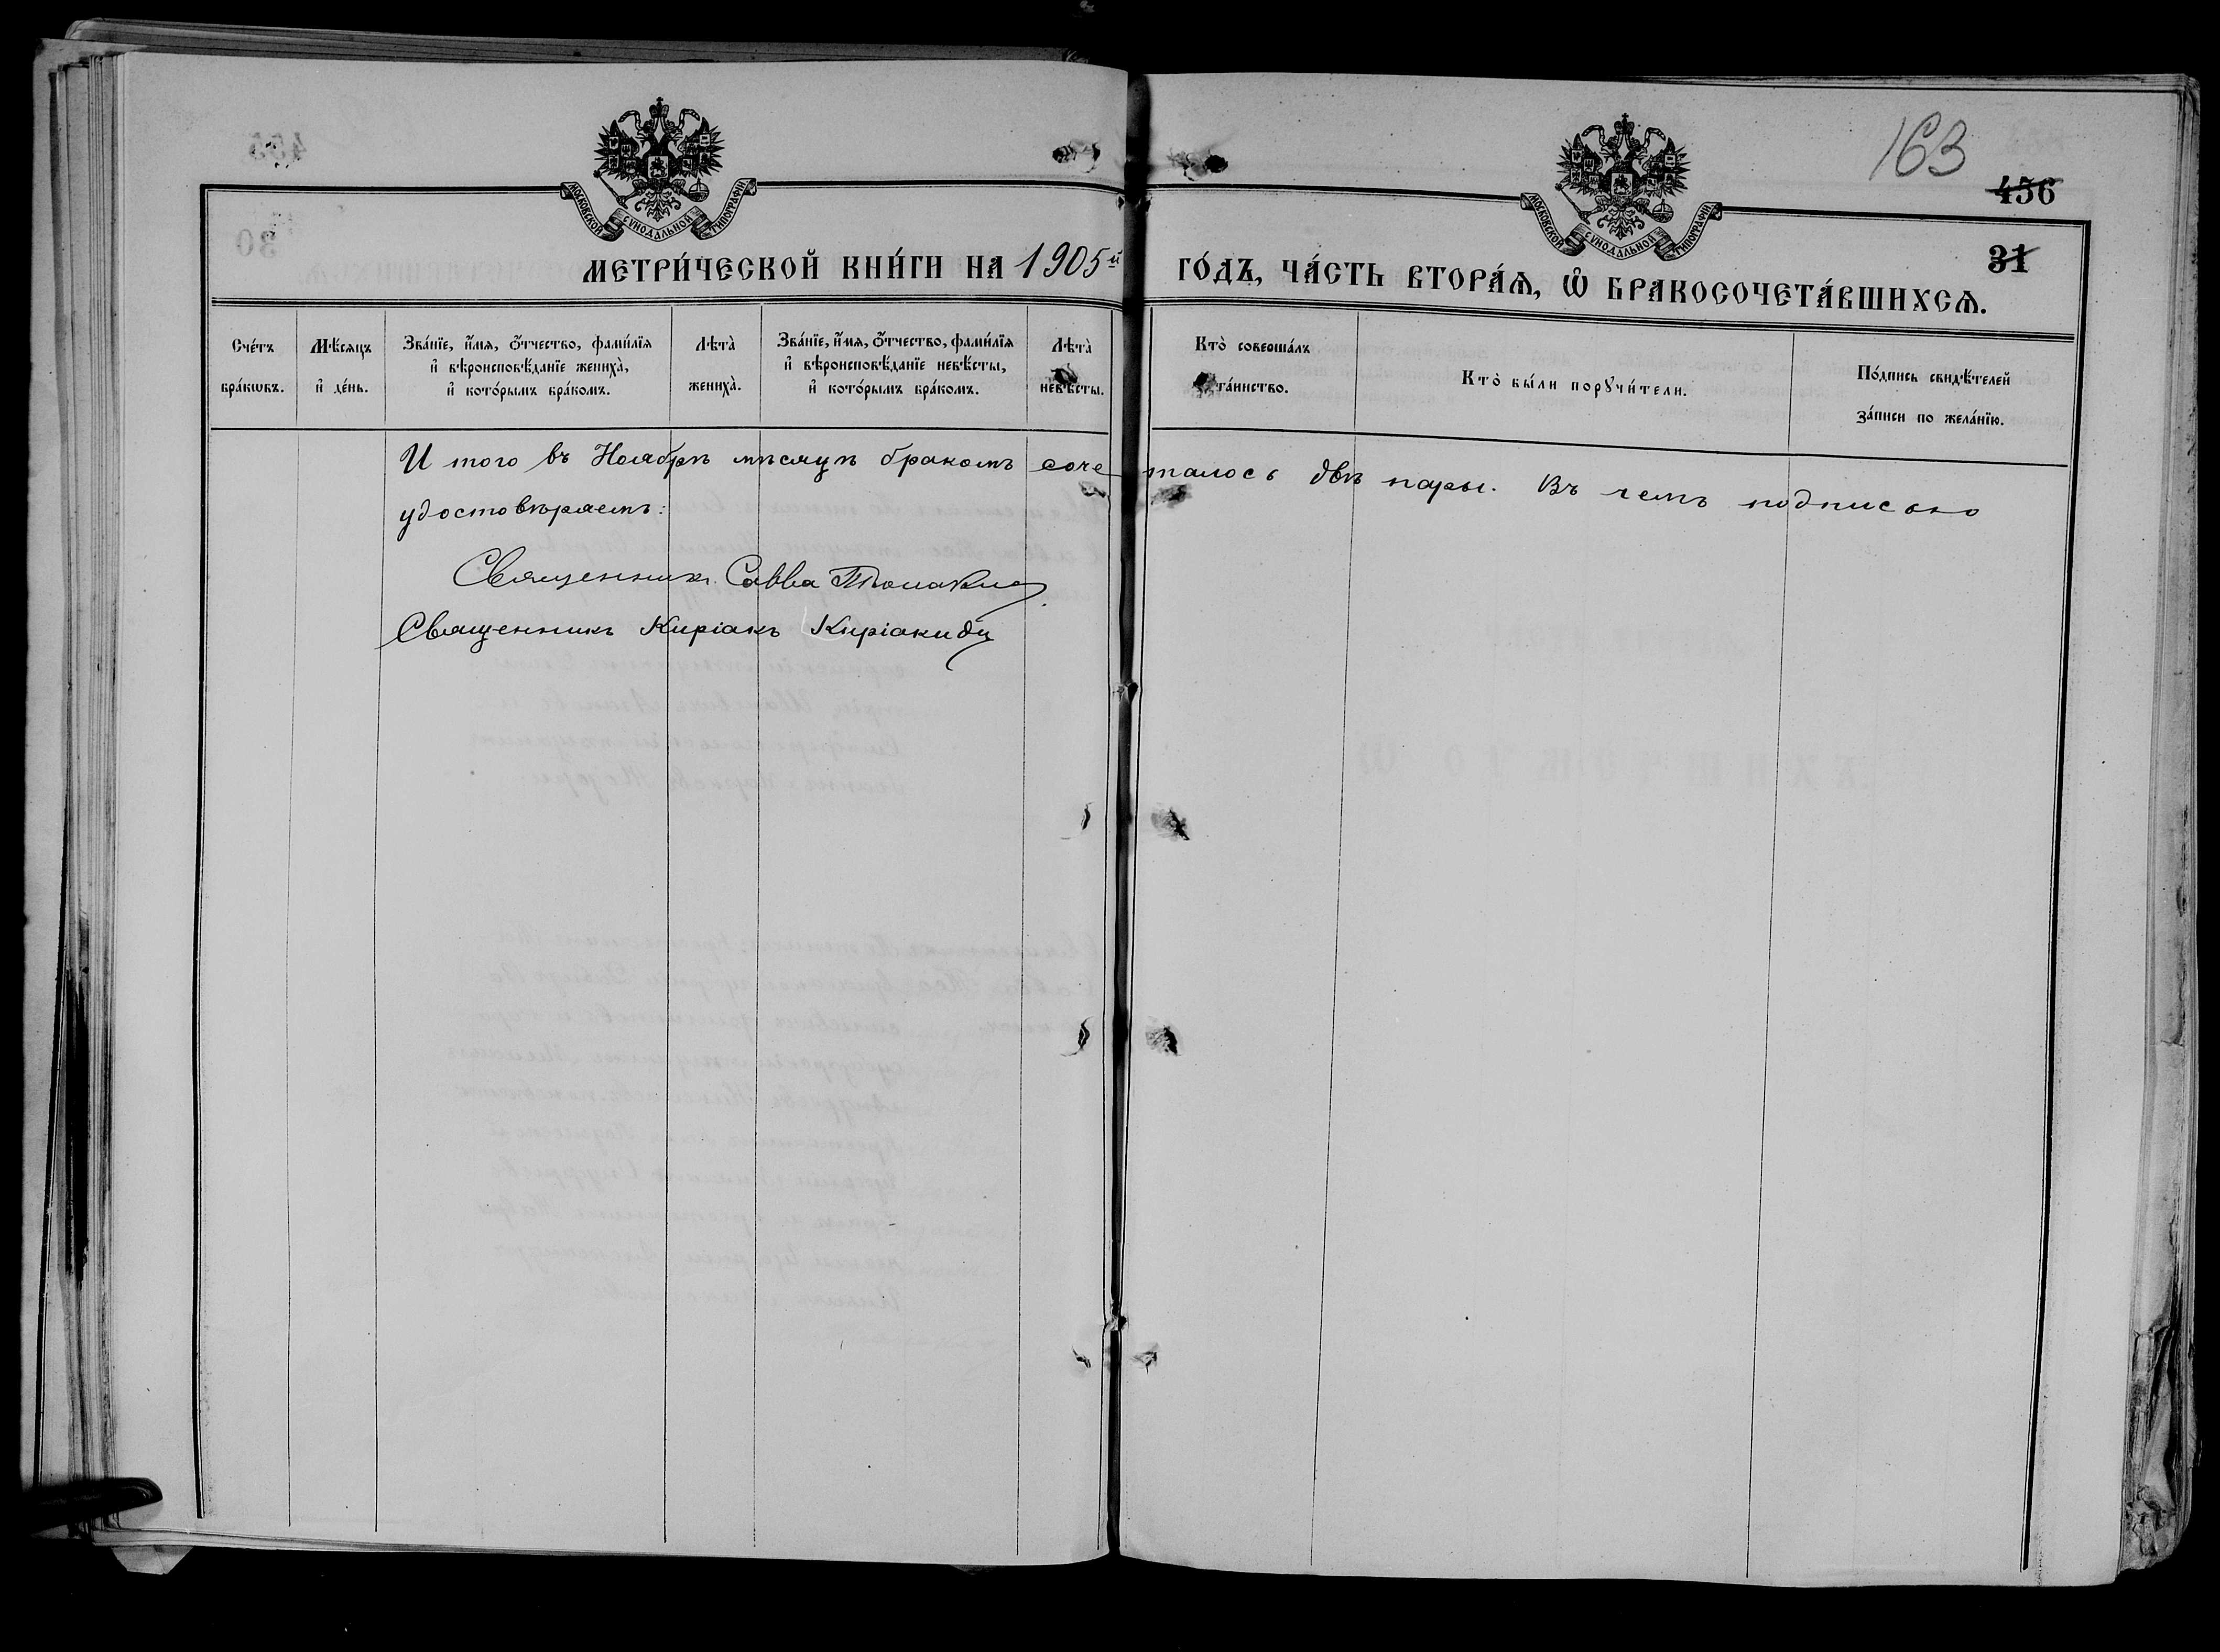 163
456
31
МОСКОВСКОЙ СѴНОДАЛЬНОЙ ТИПОГРАФІИ
МОСКОВСКОЙ СѴНОДАЛЬНОЙ ТИПОГРАФІИ
МЕТРИ́ЧЕСКОЙ КНИ́ГИ НА 1905й ГО́ДЪ, ЧА́СТЬ ВТОРА́Ѧ, Ѽ БРАКОСОЧЕТА́ВШИХСѦ.
Сче́тъ
бра́кѡвъ.
Мѣ́сяцъ
и҆ де́нь.
Зва́нїе, и҆́мя, ѻ҆́тчество, фами́лїя
и҆ вѣроисповѣ́данїе жениха̀,
и҆ кото́рымъ бра́комъ.
Лѣта̀
жениха̀.
Зва́нїе, и҆́мя, ѻ҆́тчество, фами́лїя
и҆ вѣроисповѣ́данїе невѣ́сты,
и҆ кото́рымъ бра́комъ.
Лѣта̀
невѣ́сты.
Кто̀ совершáлъ
та́инство.
Кто̀ бы́ли порꙋчи́тели.
По́дпись свидѣ́телей
за́писи по жела́нїю.
И того въ Ноябрѣ мѣсяцѣ бракомъ сочеталось двѣ пары. Въ чемъ подписью
удостовѣряемъ:
Священникъ Савва
Священникъ Киріакъ Киріакиди